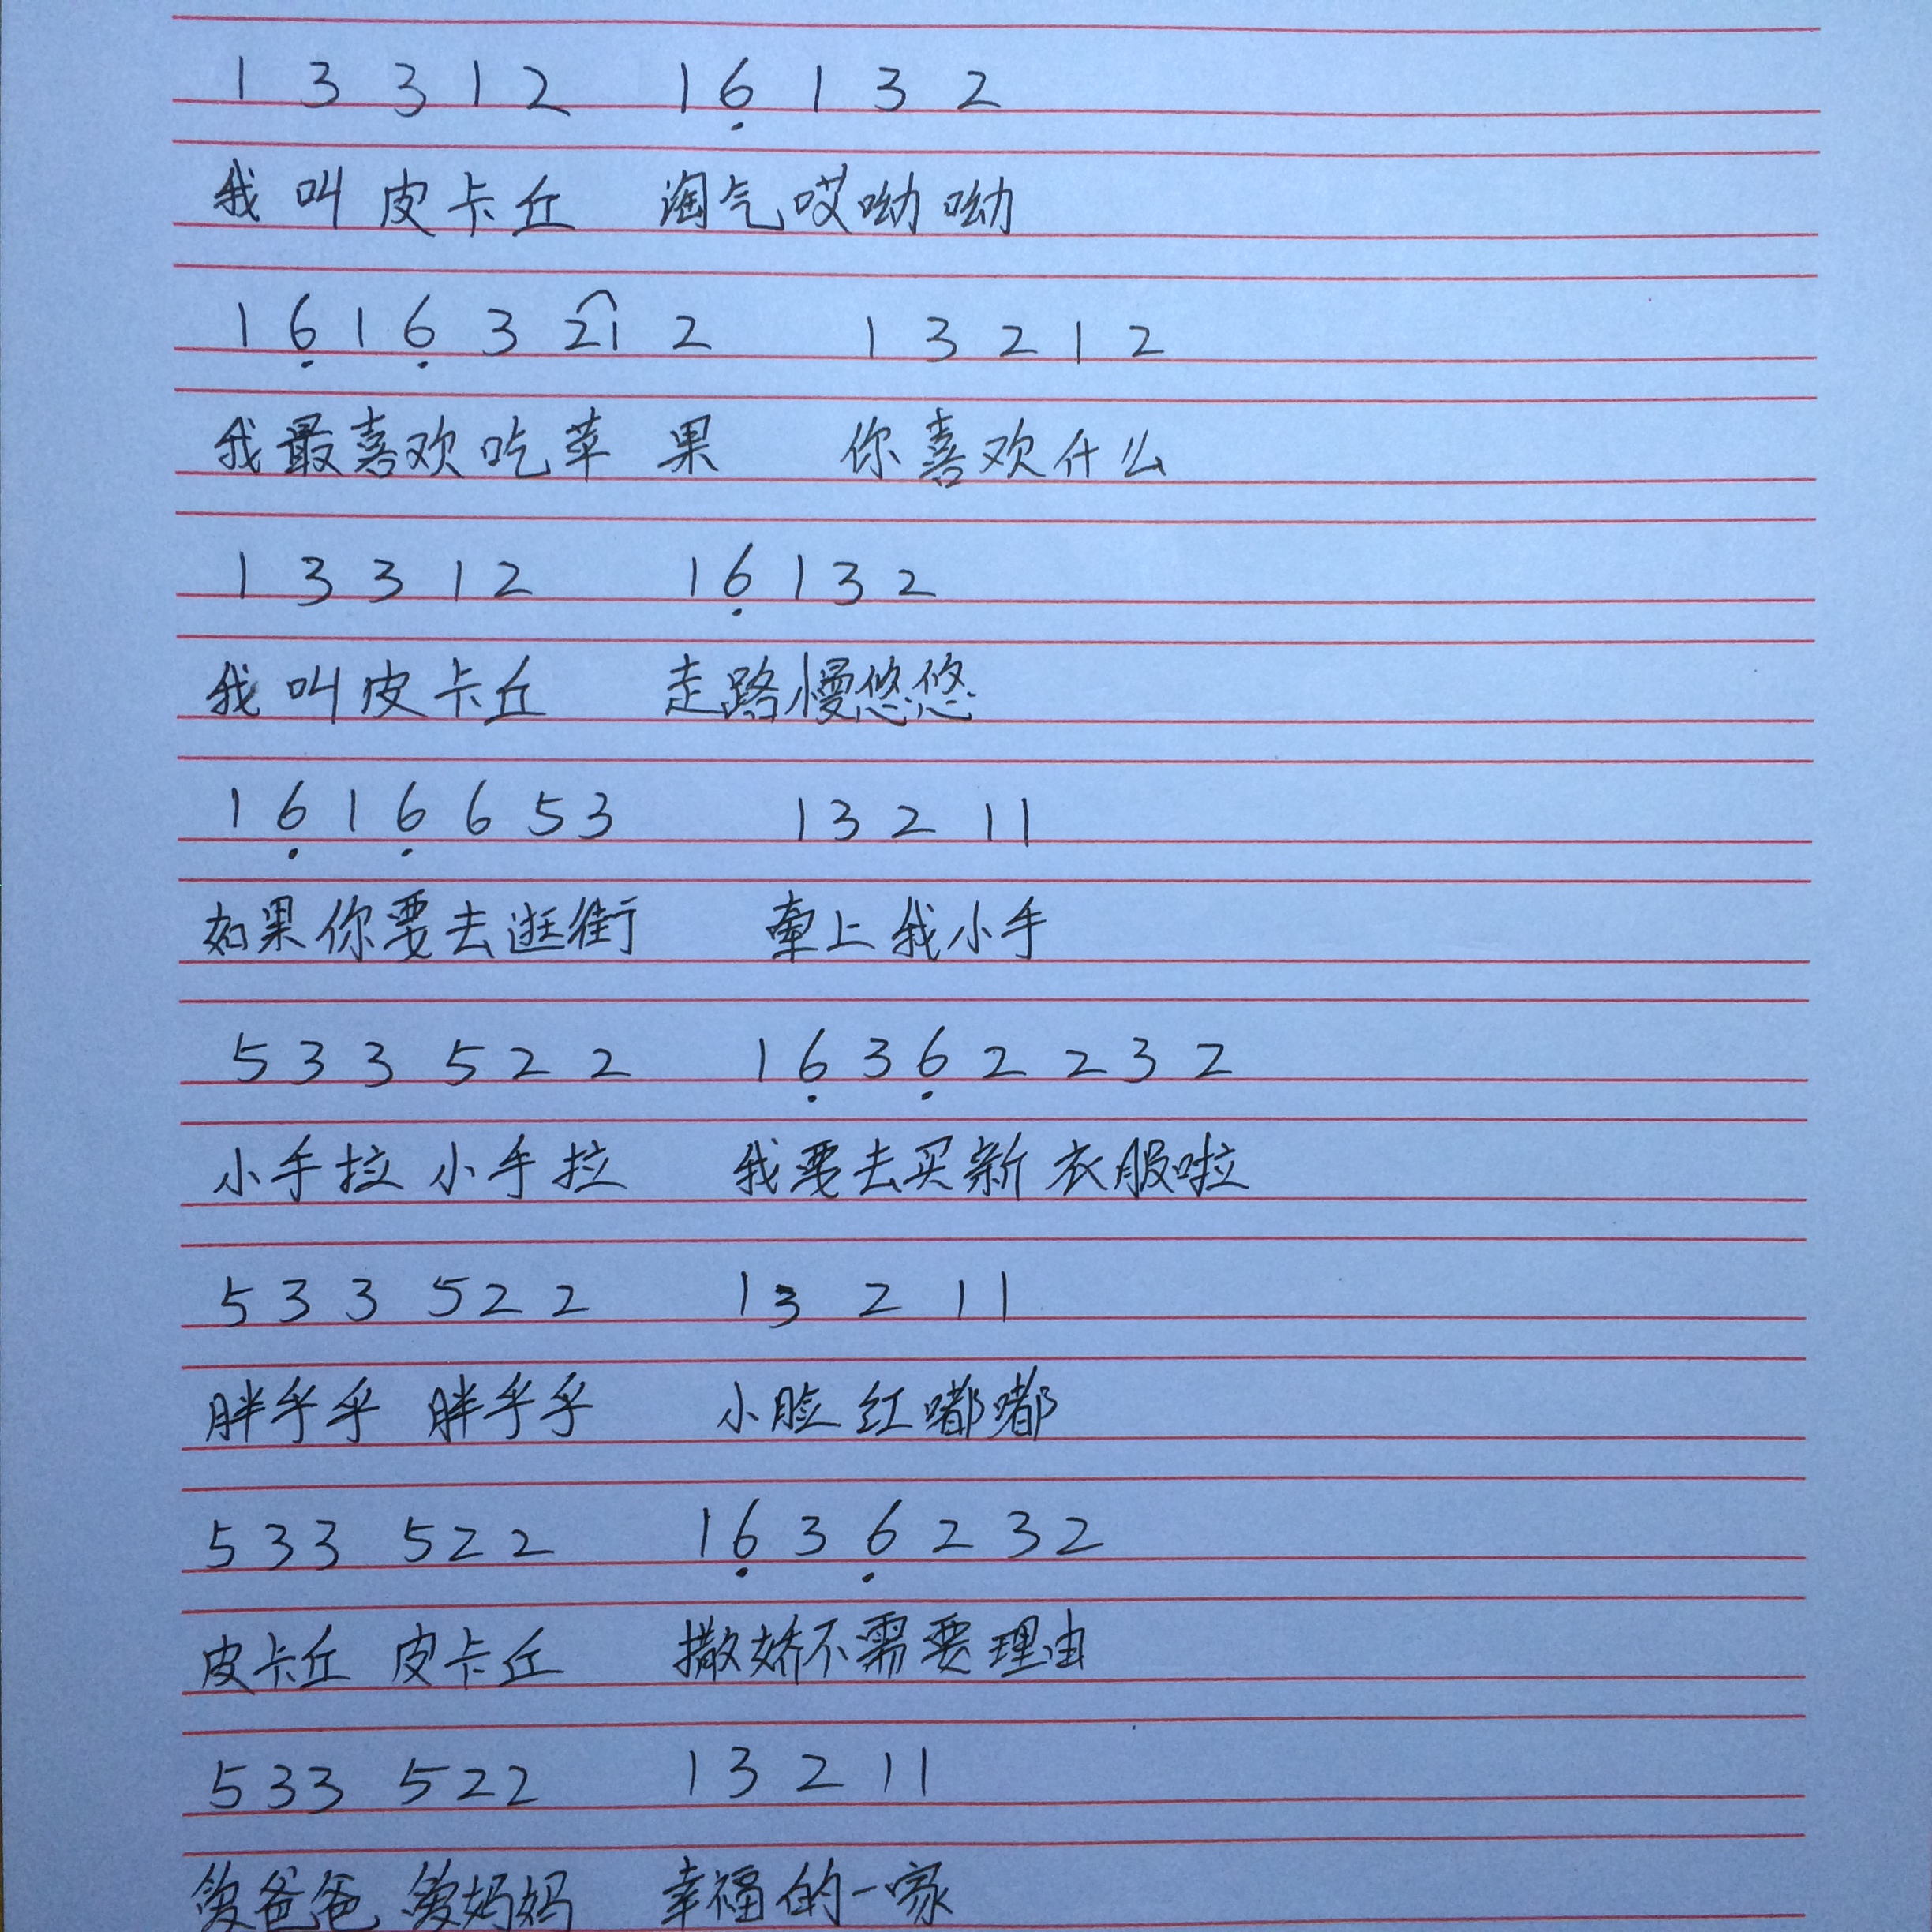 1 3 3 1 2 1 6̣ 1 3 2
我叫皮卡丘 淘气哎呦呦
1 6̣ 1 6̣ 3 21 2 1 3 2 1 2
我最喜欢吃苹果 你喜欢什么
1 3 3 1 2 1 6̣ 1 3 2
我叫皮卡丘 走路慢悠悠
1 6̣ 1 6̣ 6 5 3 1 3 2 1 1
如果你要去逛街 牵上我小手
5 3 3 5 2 2 1 6̣ 3 6̣ 2 2 3 2
小手拉 小手拉 我要去买新衣服啦
5 3 3 5 2 2 1 3 2 1 1
胖乎乎 胖乎乎 小脸红嘟嘟
5 3 3 5 2 2 1 6̣ 3 6̣ 2 3 2
皮卡丘 皮卡丘 撒娇不需要理由
5 3 3 5 2 2 1 3 2 1 1
爸爸 妈妈 幸福的一家